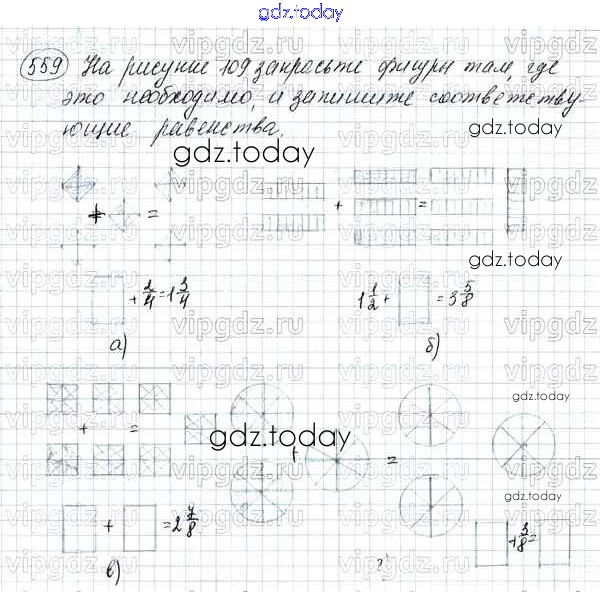 gdz.today
559 На рисунке 109 закрасьте фигуры там, где
это необходимо, и запишите соответству-
ющие равенства.
gdz.today
gdz.today
+ =
+ =
gdz.today
+ 2/4 = 1 3/4
1 1/2 + = 3 5/8
а) б)
gdz.today
+ =
gdz.today
+ =
gdz.today
+ = 2 7/8
+ 3/8 =
в)